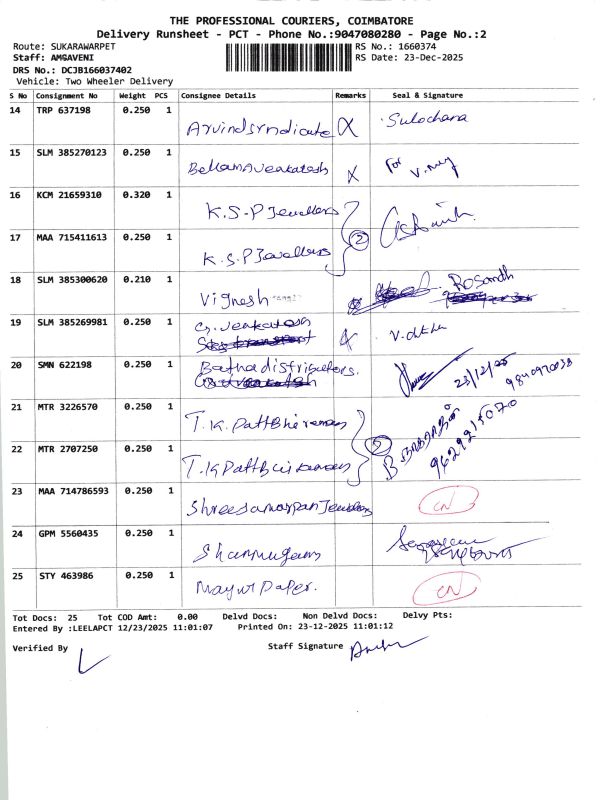 THE PROFESSIONAL COURIERS, COIMBATORE
Delivery Runsheet - PCT - Phone No.:9047080280 - Page No.:2
Route: SUKARAWARPET RS No.: 1660374
Staff: AMSAVENI RS Date: 23-Dec-2025
DRS No.: DCJB166037402
Vehicle: Two Wheeler Delivery
S No Consignment No Weight PCS Consignee Details Remarks Seal & Signature
14 TRP 637198 0.250 1 Arvindsyndicate Sulochana
15 SLM 385270123 0.250 1 for
16 KCM 21659310 0.320 1 K.S.P Jewellers
17 MAA 715411613 0.250 1 K.S.P Jewellers 2
18 SLM 385300620 0.210 1 Vignesh
19 SLM 385269981 0.250 1 G.venkatesh
20 SMN 622198 0.250 1 Bathadistributors. 23/12/25
21 MTR 3226570 0.250 1 T.K.
22 MTR 2707250 0.250 1 T.K
23 MAA 714786593 0.250 1 Shreesamarpan Jewellers CN
24 GPM 5560435 0.250 1 Shanmugam
25 STY 463986 0.250 1 Mayur Paper. CN
Tot Docs: 25 Tot COD Amt: 0.00 Delvd Docs: Non Delvd Docs: Delvy Pts:
Entered By :LEELAPCT 12/23/2025 11:01:07 Printed On: 23-12-2025 11:01:12
Verified By Staff Signature